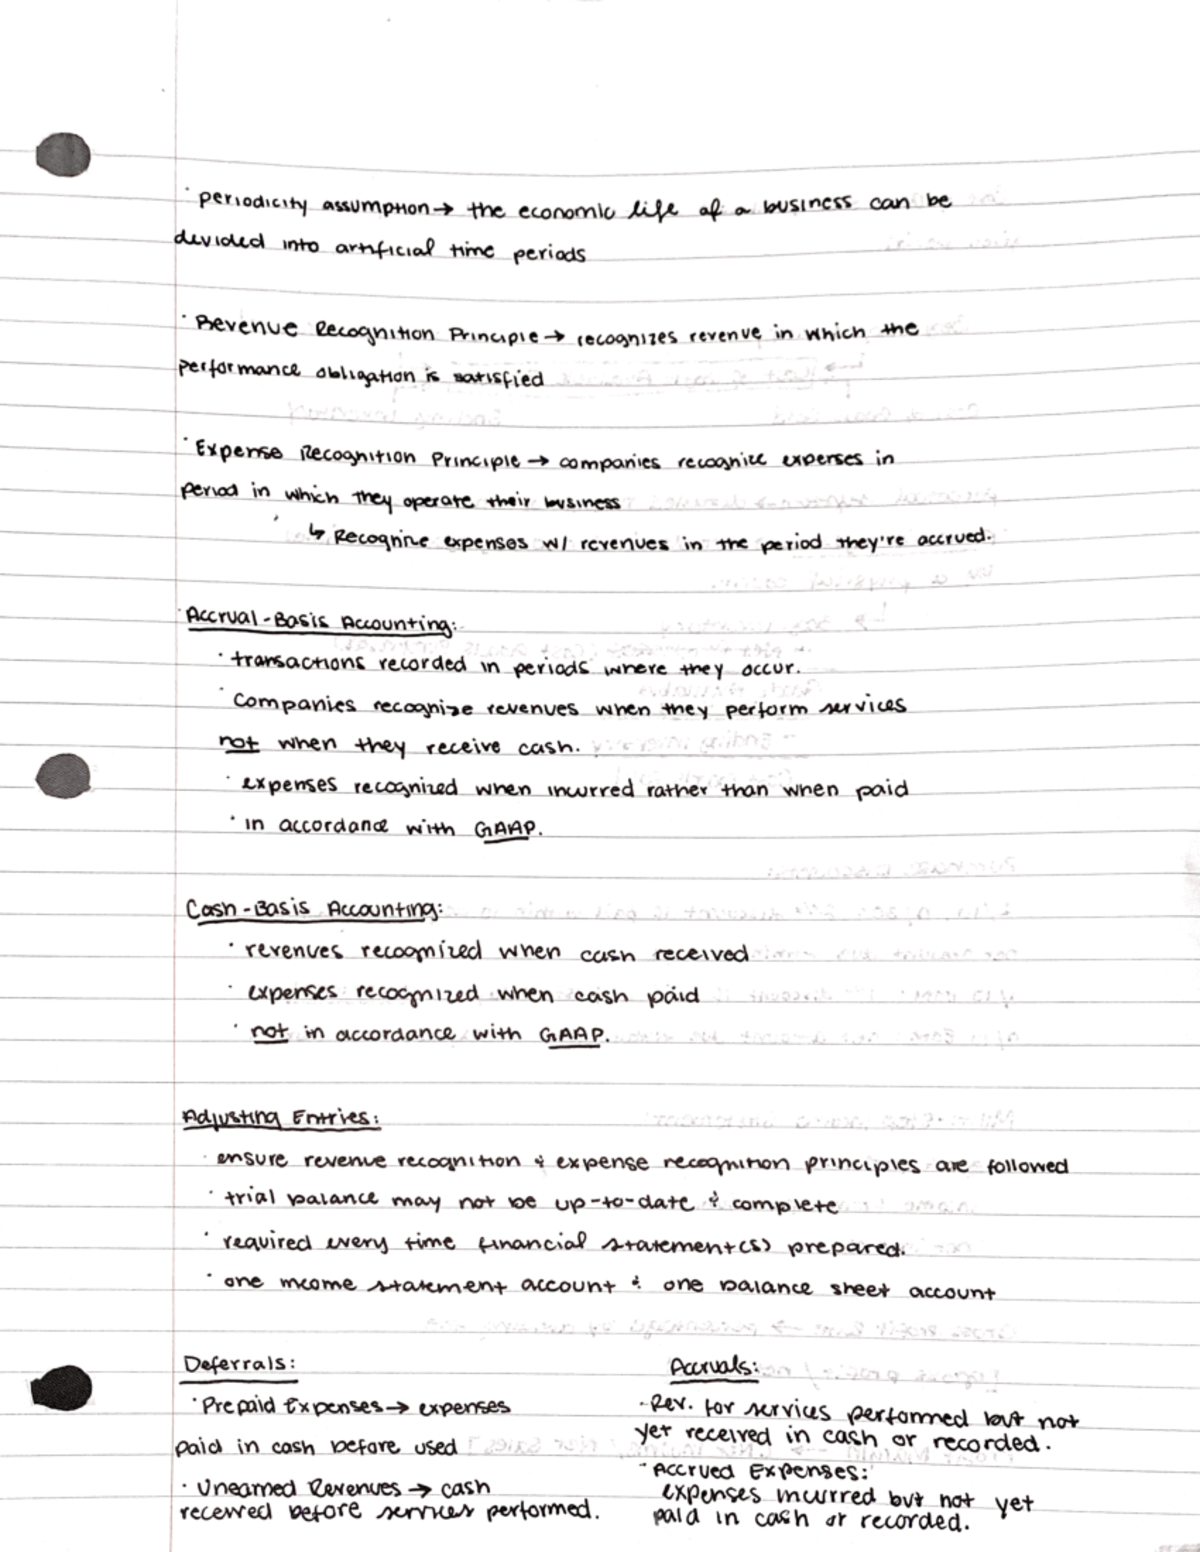 · periodicity assumption → the economic life of a business can be
devided into artificial time periods
· Revenue Recognition Principle → recognizes revenue in which the
performance obligation is satisfied
· Expense Recognition Principle → companies recognize expenses in
period in which they operate their business
↳ Recognize expenses w/ revenues in the period they're accrued.
· Accrual-Basis Accounting:
· transactions recorded in periods where they occur.
· Companies recognize revenues when they perform services
not when they receive cash.
· expenses recognized when incurred rather than when paid
· in accordance with GAAP.
Cash-Basis Accounting:
· revenues recognized when cash received
· expenses recognized when cash paid
· not in accordance with GAAP.
Adjusting Entries:
· ensure revenue recognition & expense recognition principles are followed
· trial balance may not be up-to-date & complete
· required every time financial statement(s) prepared.
· one income statement account & one balance sheet account
Deferrals:
· Prepaid Expenses → expenses
paid in cash before used
· Unearned Revenues → cash
received before services performed.
Accruals:
· Rev. for services performed but not
yet received in cash or recorded.
· Accrued Expenses:
expenses incurred but not yet
paid in cash or recorded.